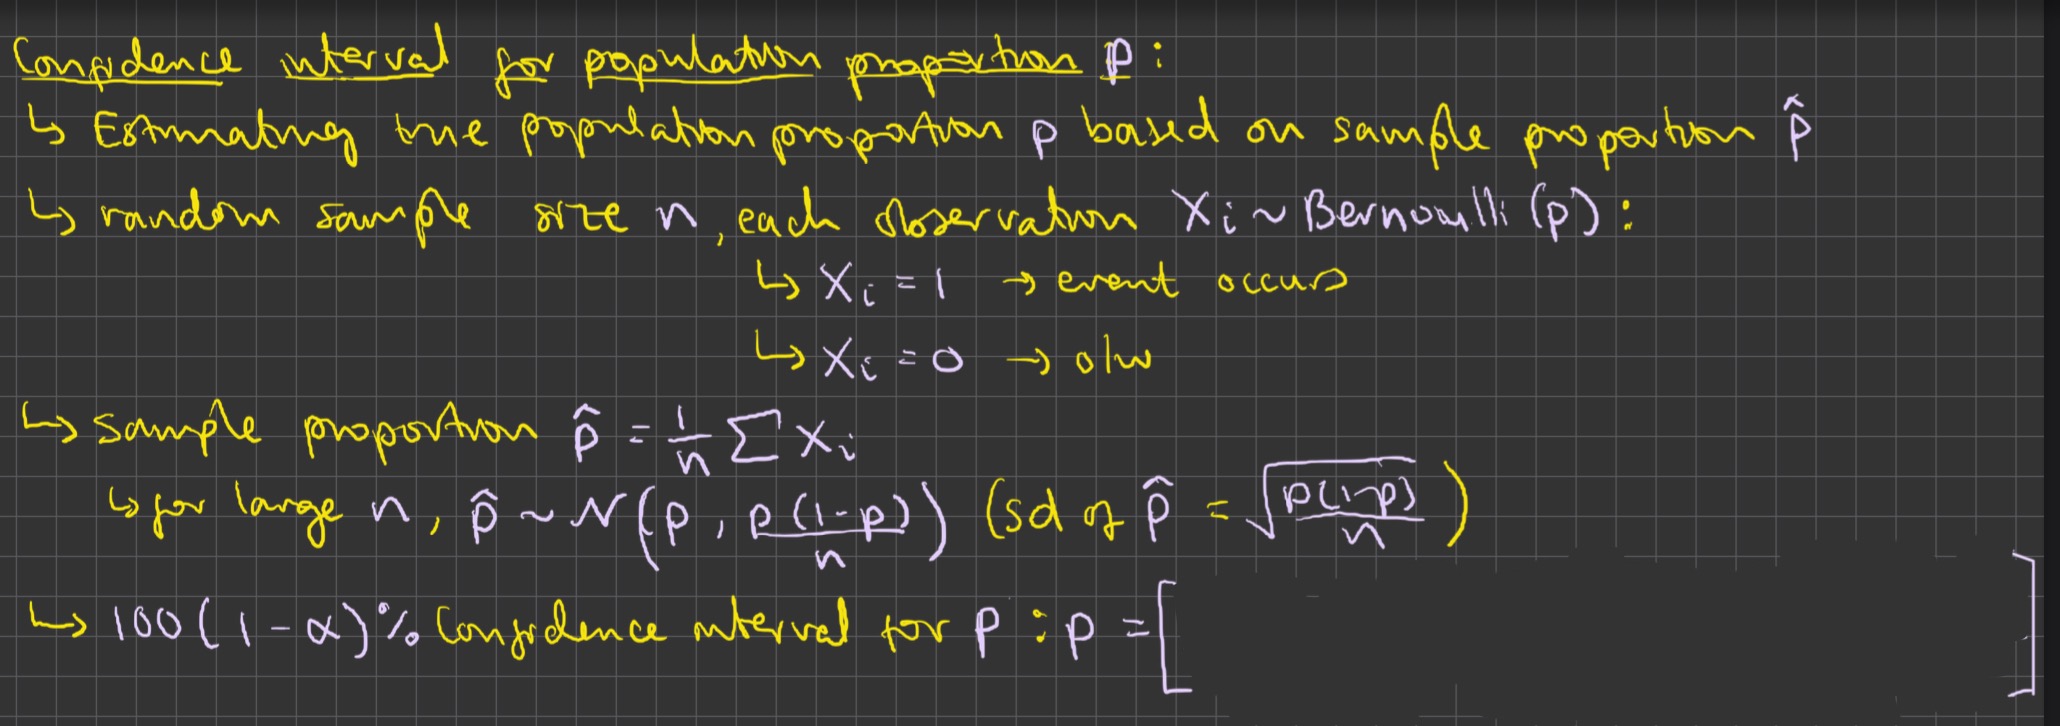 Confidence interval for population proportion p :
↳ Estimating true population proportion p based on sample proportion p̂
↳ random sample size n, each observation Xi ~ Bernoulli (p) :
↳ Xi = 1 → event occurs
↳ Xi = 0 → o/w
↳ sample proportion p̂ = 1/n ∑ Xi
↳ for large n, p̂ ~ N(p, p(1-p)/n) (sd of p̂ = √(p(1-p)/n))
↳ 100(1-α)% Confidence interval for p : p = [ ]